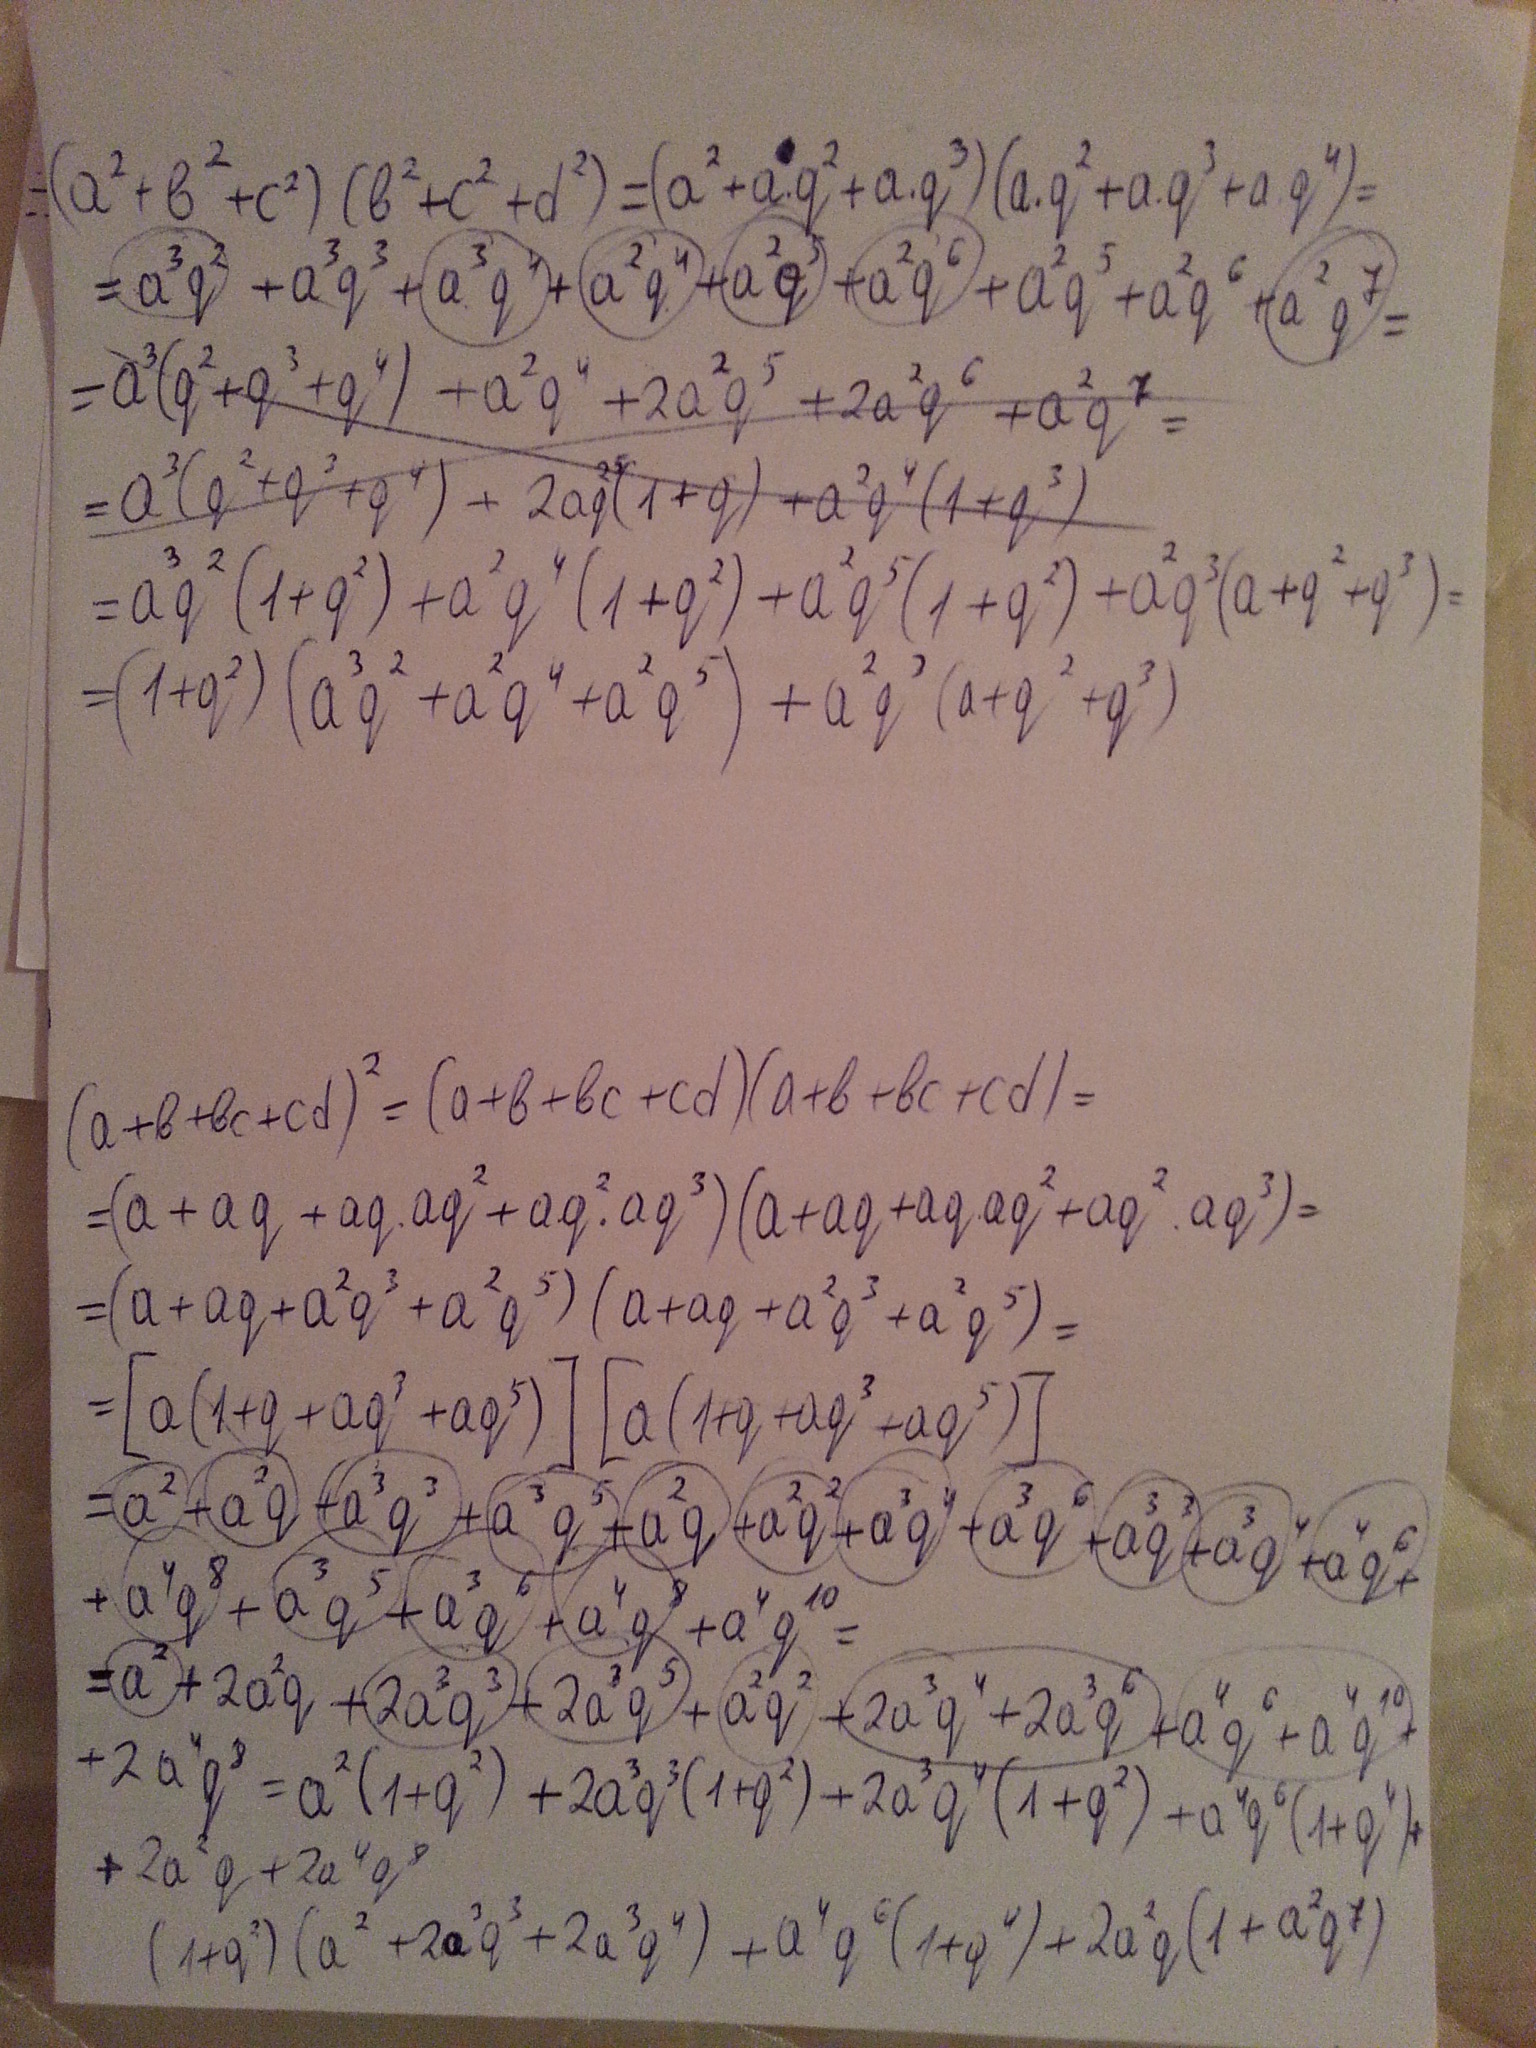 =(a²+b²+c²)(b²+c²+d²)=(a²+a.q²+a.q³)(a.q²+a.q³+a.q⁴)=
=a³q²+a³q³+a³q⁴+a²q⁴+a²q⁵+a²q⁶+a²q⁵+a²q⁶+a²q⁷=
=a³(q²+q³+q⁴)+a²q⁴+2a²q⁵+2a²q⁶+a²q⁷=
=a³(q²+q³+q⁴)+2a²q⁵(1+q)+a²q⁴(1+q³)
=a³q²(1+q²)+a²q⁴(1+q²)+a²q⁵(1+q²)+a²q³(a+q²+q³)=
=(1+q²)(a³q²+a²q⁴+a²q⁵)+a²q³(a+q²+q³)
(a+b+bc+cd)²=(a+b+bc+cd)(a+b+bc+cd)=
=(a+aq+aq.aq²+aq².aq³)(a+aq+aq.aq²+aq².aq³)=
=(a+aq+a²q³+a²q⁵)(a+aq+a²q³+a²q⁵)=
=[a(1+q+aq³+aq⁵)][a(1+q+aq³+aq⁵)]
=a²+a²q+a³q³+a³q⁵+a²q+a²q²+a³q⁴+a³q⁶+a³q³+a³q⁴+a⁴q⁶+
+a⁴q⁸+a³q⁵+a³q⁶+a⁴q⁸+a⁴q¹⁰=
=a²+2a²q+2a³q³+2a³q⁵+a²q²+2a³q⁴+2a³q⁶+a⁴q⁶+a⁴q¹⁰+
+2a⁴q⁸=a²(1+q²)+2a³q³(1+q²)+2a³q⁴(1+q²)+a⁴q⁶(1+q⁴)+
+2a²q+2a⁴q⁸
(1+q²)(a²+2a³q³+2a³q⁴)+a⁴q⁶(1+q⁴)+2a²q(1+a²q⁷)